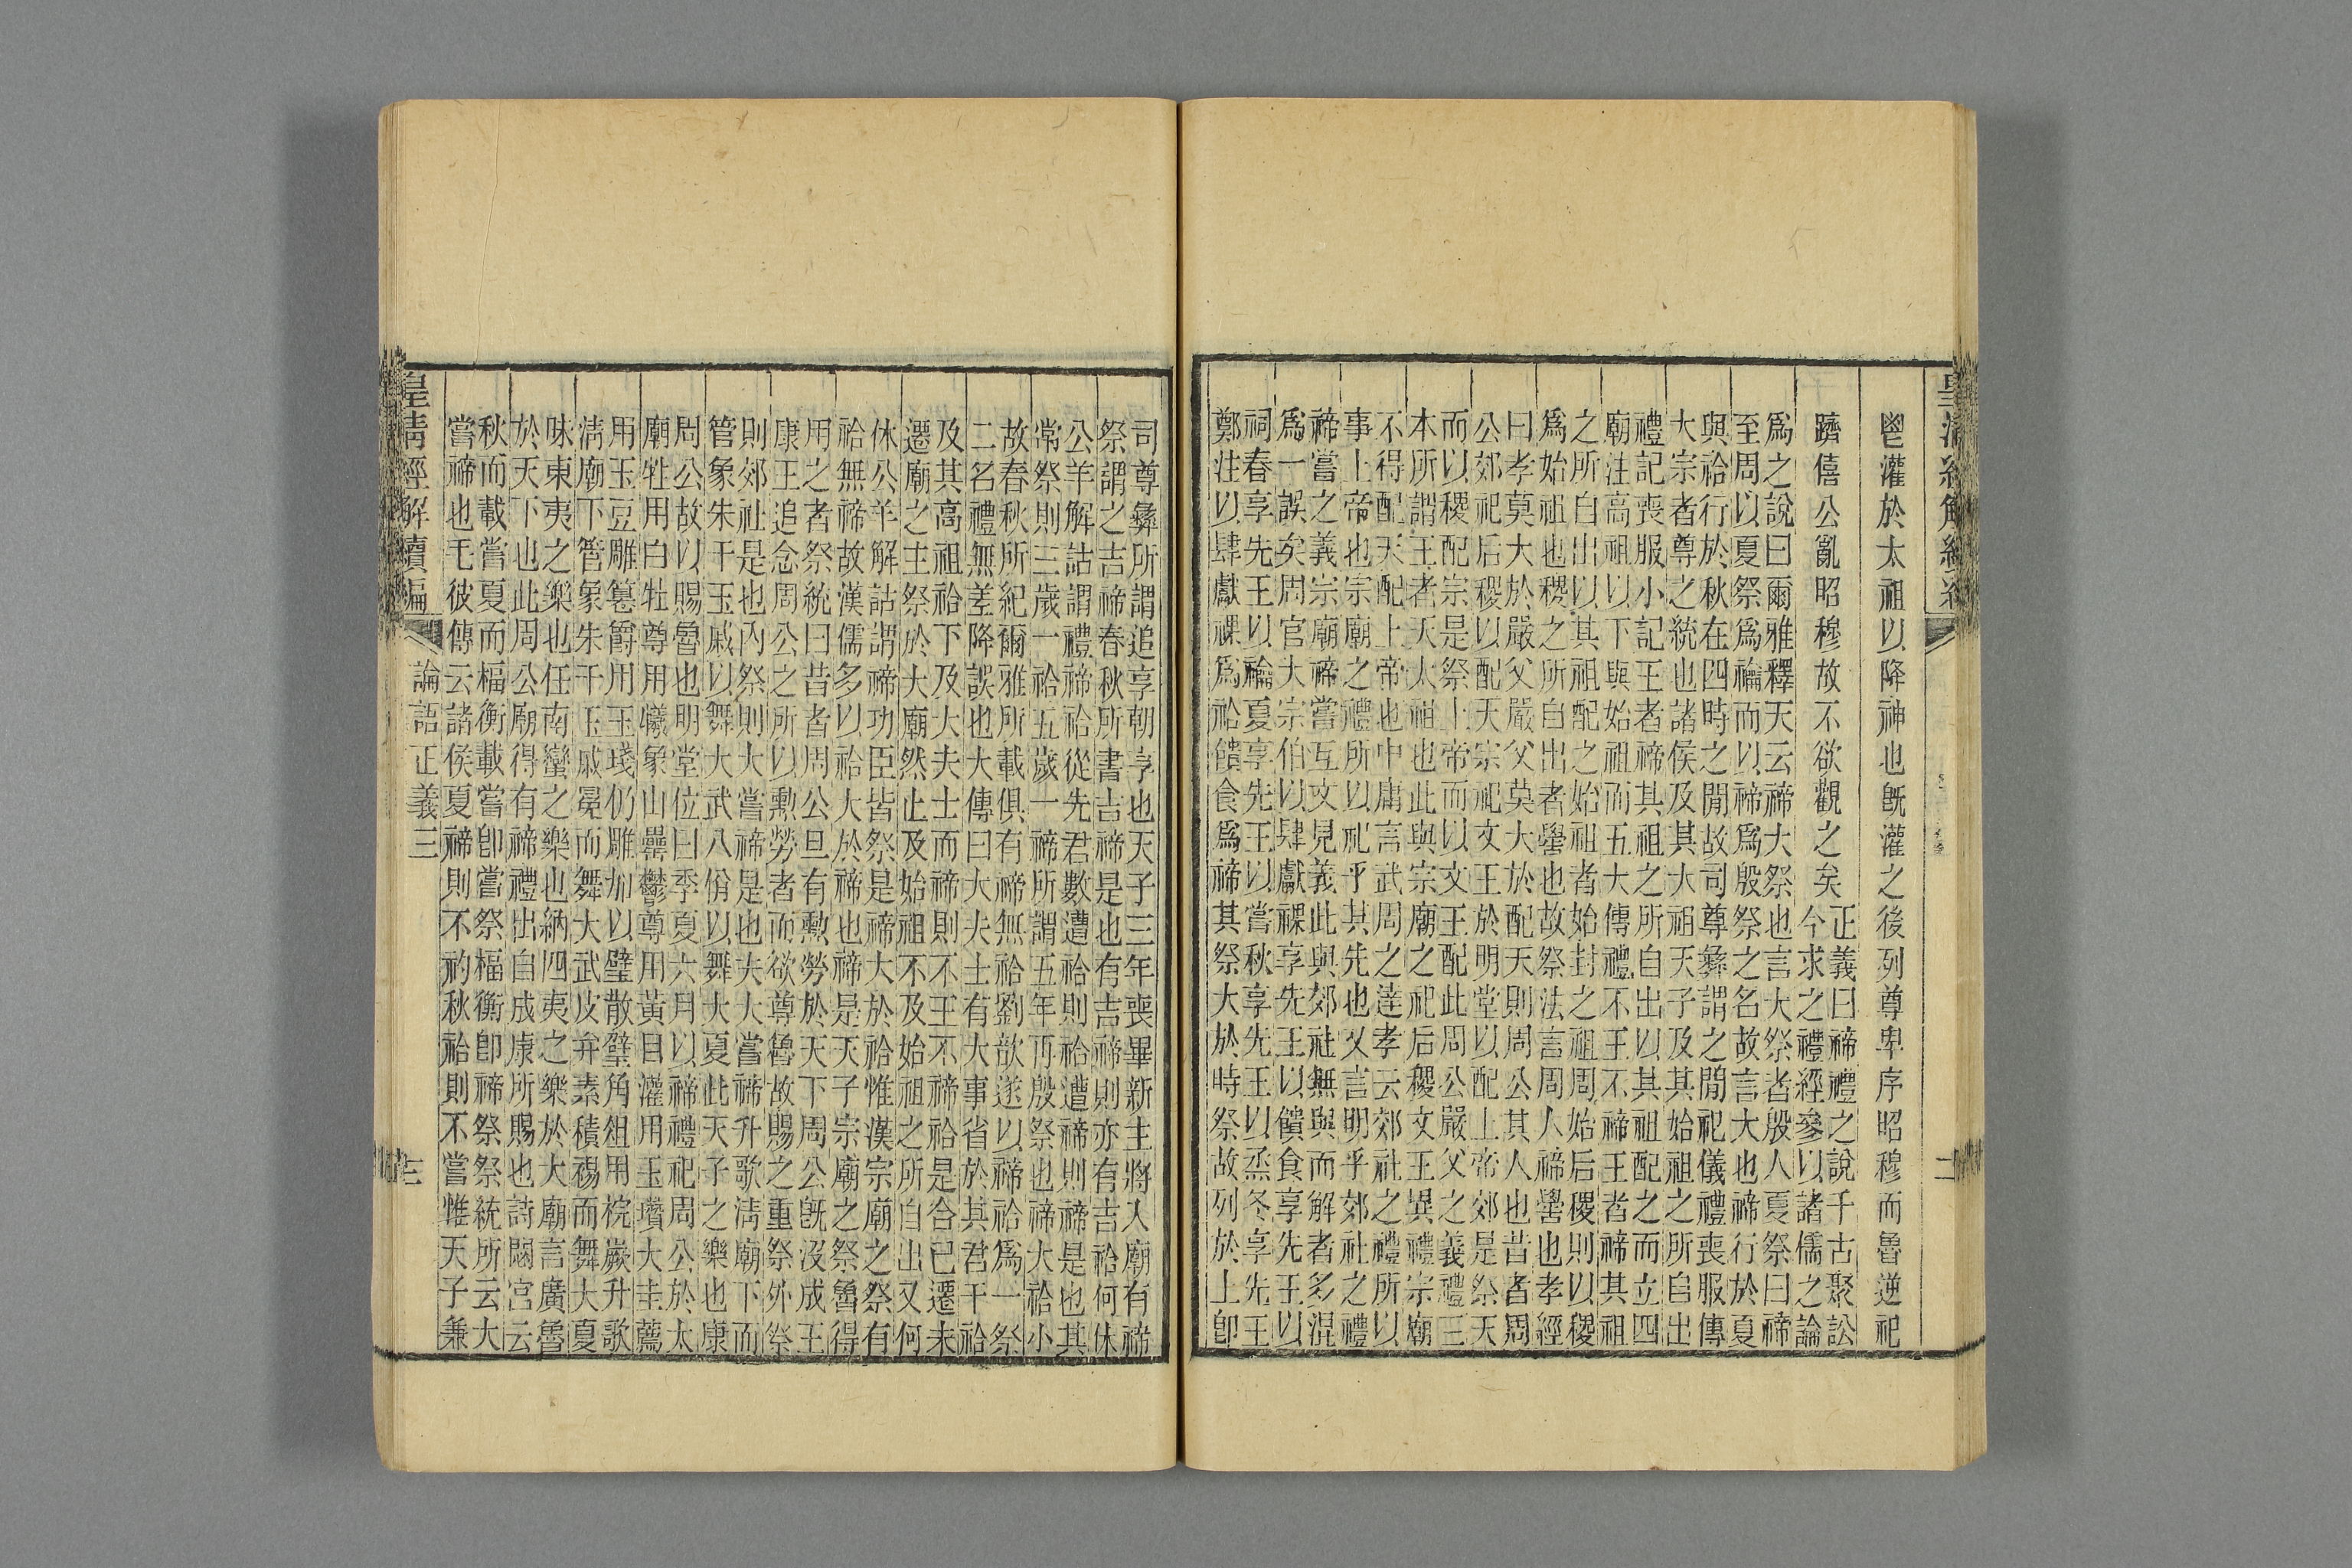 皇清經解續編
二
鬯灌於太祖以降神也既灌之後列尊卑序昭穆而魯逆祀
躋僖公亂昭穆故不欲觀之矣
正義曰禘禮之說千古聚訟
今求之禮經參以諸儒之論
爲之說曰爾雅釋天云禘大祭也言大祭者殷人夏祭曰禘
至周以夏祭爲禴而以禘爲殷祭之名故言大也禘行於夏
與祫行於秋在四時之閒故司尊彝謂之閒祀儀禮喪服傳
大宗者尊之統也諸侯及其大祖天子及其始祖之所自出
禮記喪服小記王者禘其祖之所自出以其祖配之而立四
廟注高祖以下與始祖而五大傳禮不王不禘王者禘其祖
之所自出以其祖配之始祖者始封之祖周始后稷則以稷
爲始祖也稷之所自出者嚳也故祭法言周人禘嚳也孝經
曰孝莫大於嚴父嚴父莫大於配天則周公其人也昔者周
公郊祀后稷以配天宗祀文王於明堂以配上帝郊是祭天
而以稷配宗是祭上帝而以文王配此周公嚴父之義禮三
本所謂王者天太祖也此與宗廟之祀后稷文王異禮宗廟
不得配天配上帝也中庸言武周之達孝云郊社之禮所以
事上帝也宗廟之禮所以祀乎其先也又言明乎郊社之禮
禘嘗之義宗廟禘嘗互文見義此與郊社無與而解者多混
爲一誤矣周官大宗伯以肆獻祼享先王以饋食享先王以
祠春享先王以禴夏享先王以嘗秋享先王以烝冬享先王
鄭注以肆獻祼爲祫饋食爲禘其祭大於時祭故列於上卽
司尊彝所謂追享朝享也天子三年喪畢新主將入廟有禘
祭謂之吉禘春秋所書吉禘是也有吉禘則亦有吉祫何休
公羊解詁謂禮禘祫從先君數遭祫則祫遭禘則禘是也其
常祭則三歲一祫五歲一禘所謂五年再殷祭也禘大祫小
故春秋所紀爾雅所載俱有禘無祫劉歆遂以禘祫爲一祭
二名禮無差降誤也大傳曰大夫士有大事省於其君干祫
及其高祖祫下及大夫士而禘則不王不禘祫是合已遷未
遷廟之主祭於大廟然止及始祖不及始祖之所自出又何
休公羊解詁謂禘功臣皆祭是禘大於祫惟漢宗廟之祭有
祫無禘故漢儒多以祫大於禘也禘是天子宗廟之祭魯得
用之者祭統曰昔者周公旦有勳勞於天下周公旣沒成王
康王追念周公之所以勳勞者而欲尊魯故賜之重祭外祭
則郊社是也內祭則大嘗禘是也夫大嘗禘升歌清廟下而
管象朱干玉戚以舞大武八佾以舞大夏此天子之樂也康
周公故以賜魯也明堂位曰季夏六月以禘禮祀周公於太
廟牲用白牡尊用犧象山罍鬱尊用黃目灌用玉瓚大圭薦
用玉豆雕篹爵用玉琖仍雕加以璧散璧角俎用梡嶡升歌
清廟下管象朱干玉戚冕而舞大武皮弁素積裼而舞大夏
昧東夷之樂也任南蠻之樂也納四夷之樂於大廟言廣魯
於天下也此周公廟得有禘禮出自成康所賜也詩閟宮云
秋而載嘗夏而楅衡載嘗卽嘗祭楅衡卽禘祭祭統所云大
嘗禘也毛彼傳云諸侯夏禘則不礿秋祫則不嘗惟天子兼
皇清經解續編
論語正義三
三